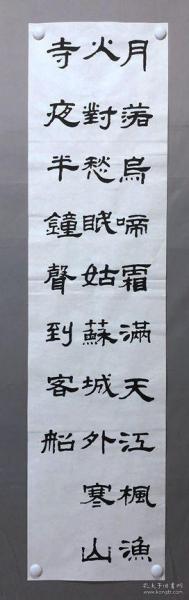 月落烏啼霜滿天江楓漁
火對愁眠姑蘇城外寒山
寺夜半鐘聲到客船
孔夫子旧书网